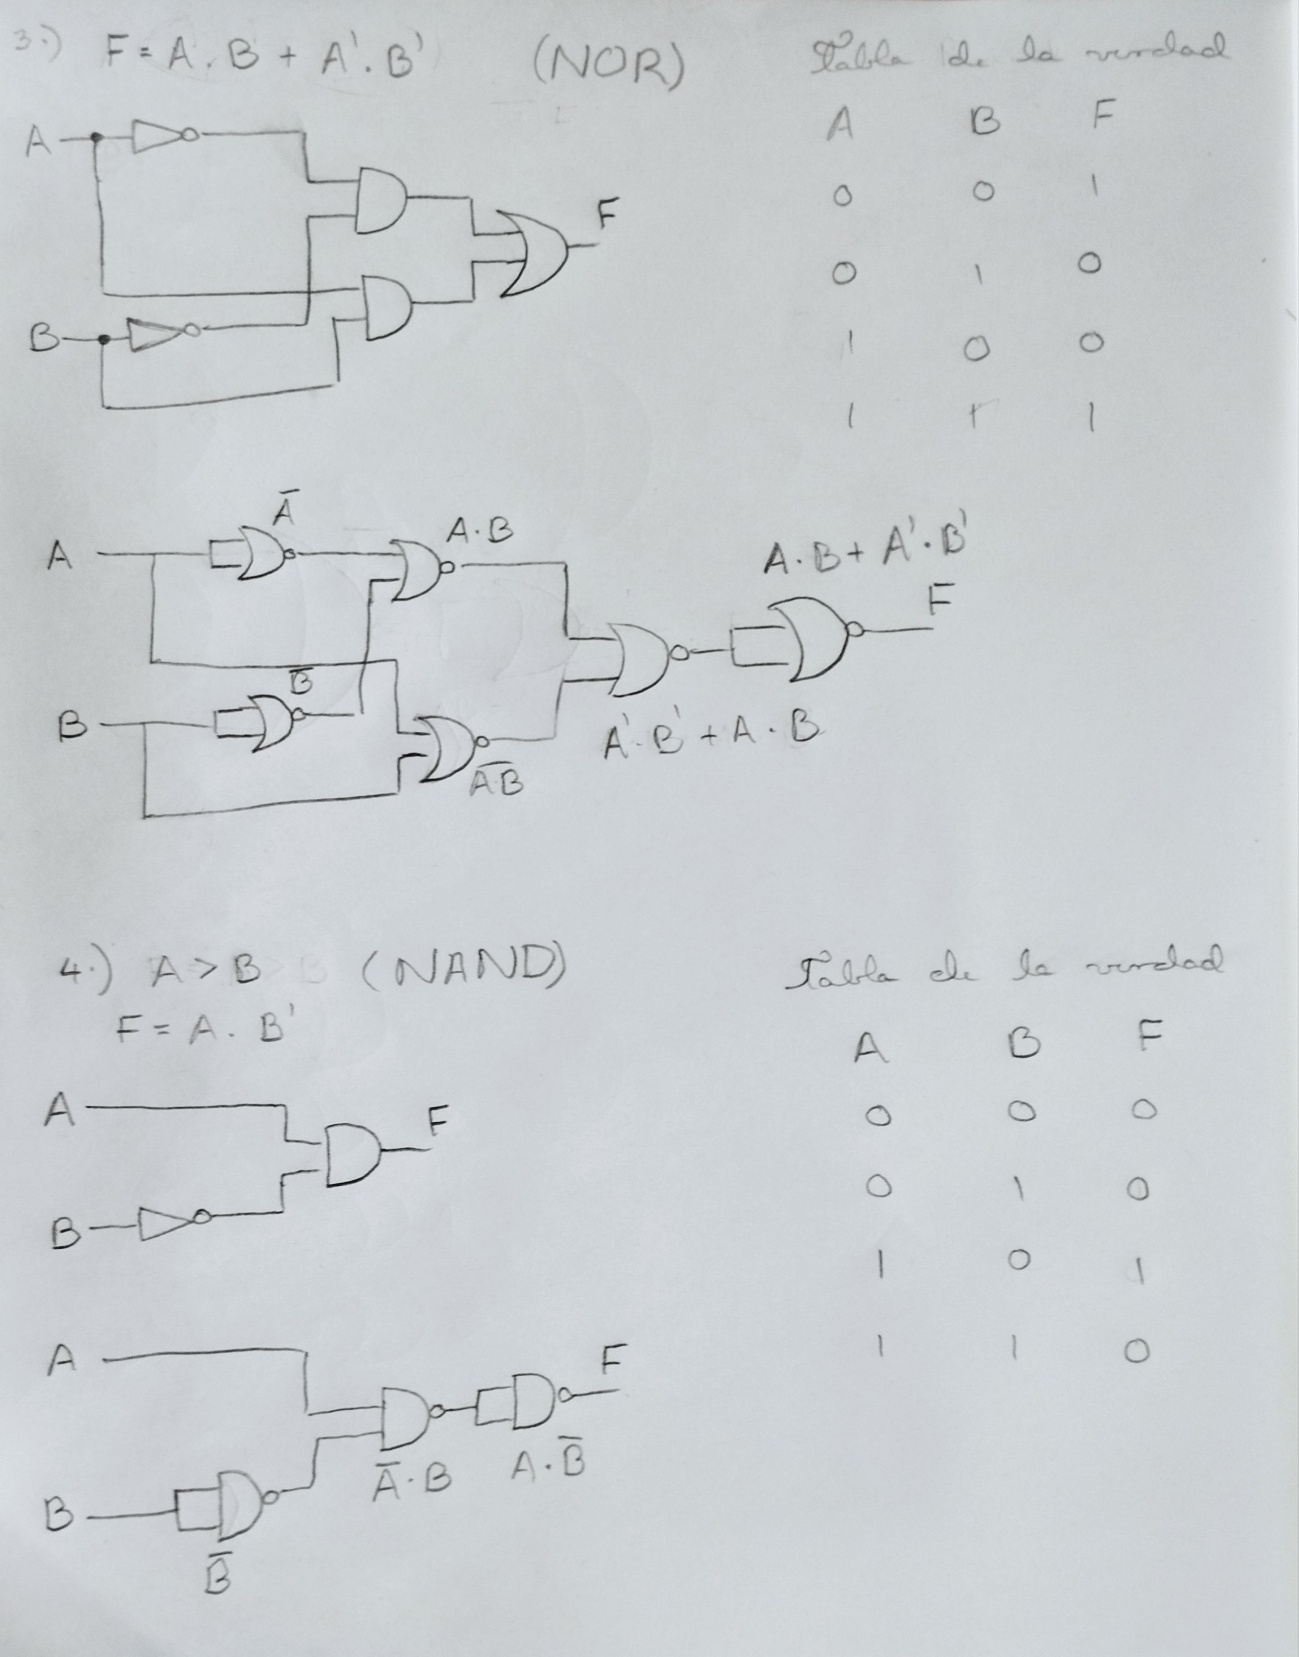 3.) F = A . B + A' . B' (NOR)
Tabla de la verdad
A B F
0 0 1
0 1 0
1 0 0
1 1 1
A
B
F
A
B
A̅
B̅
A·B
A̅·̅B̅
A'·B' + A·B
A·B + A'·B'
F
4.) A > B (NAND)
F = A . B'
Tabla de la verdad
A B F
0 0 0
0 1 0
1 0 1
1 1 0
A
B
F
A
B
B̅
A̅·B
A·B̅
F